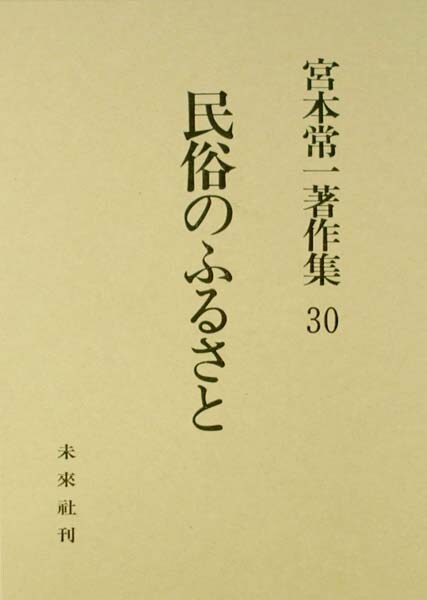 宮本常一著作集 30
民俗のふるさと
未來社刊